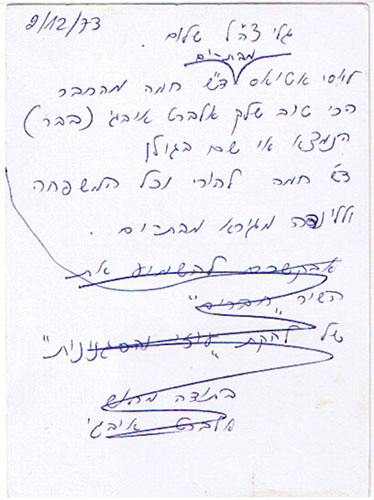 9/12/73
גלי צה"ל שלום
מבת-ים
לאסי אטיאס ד"ש חמה מהחבר
הכי טוב שלך אלברט איבגי (בבר)
הנמצא אי שם בגולן
ד"ש חמה להורי וכל המשפחה
ולל מגורא מבת-ים.
אבקשכם להשמיע את
השיר "חברים"
של להקת "עוזי והסגנונות"
בתודה מראש
אלברט איבגי